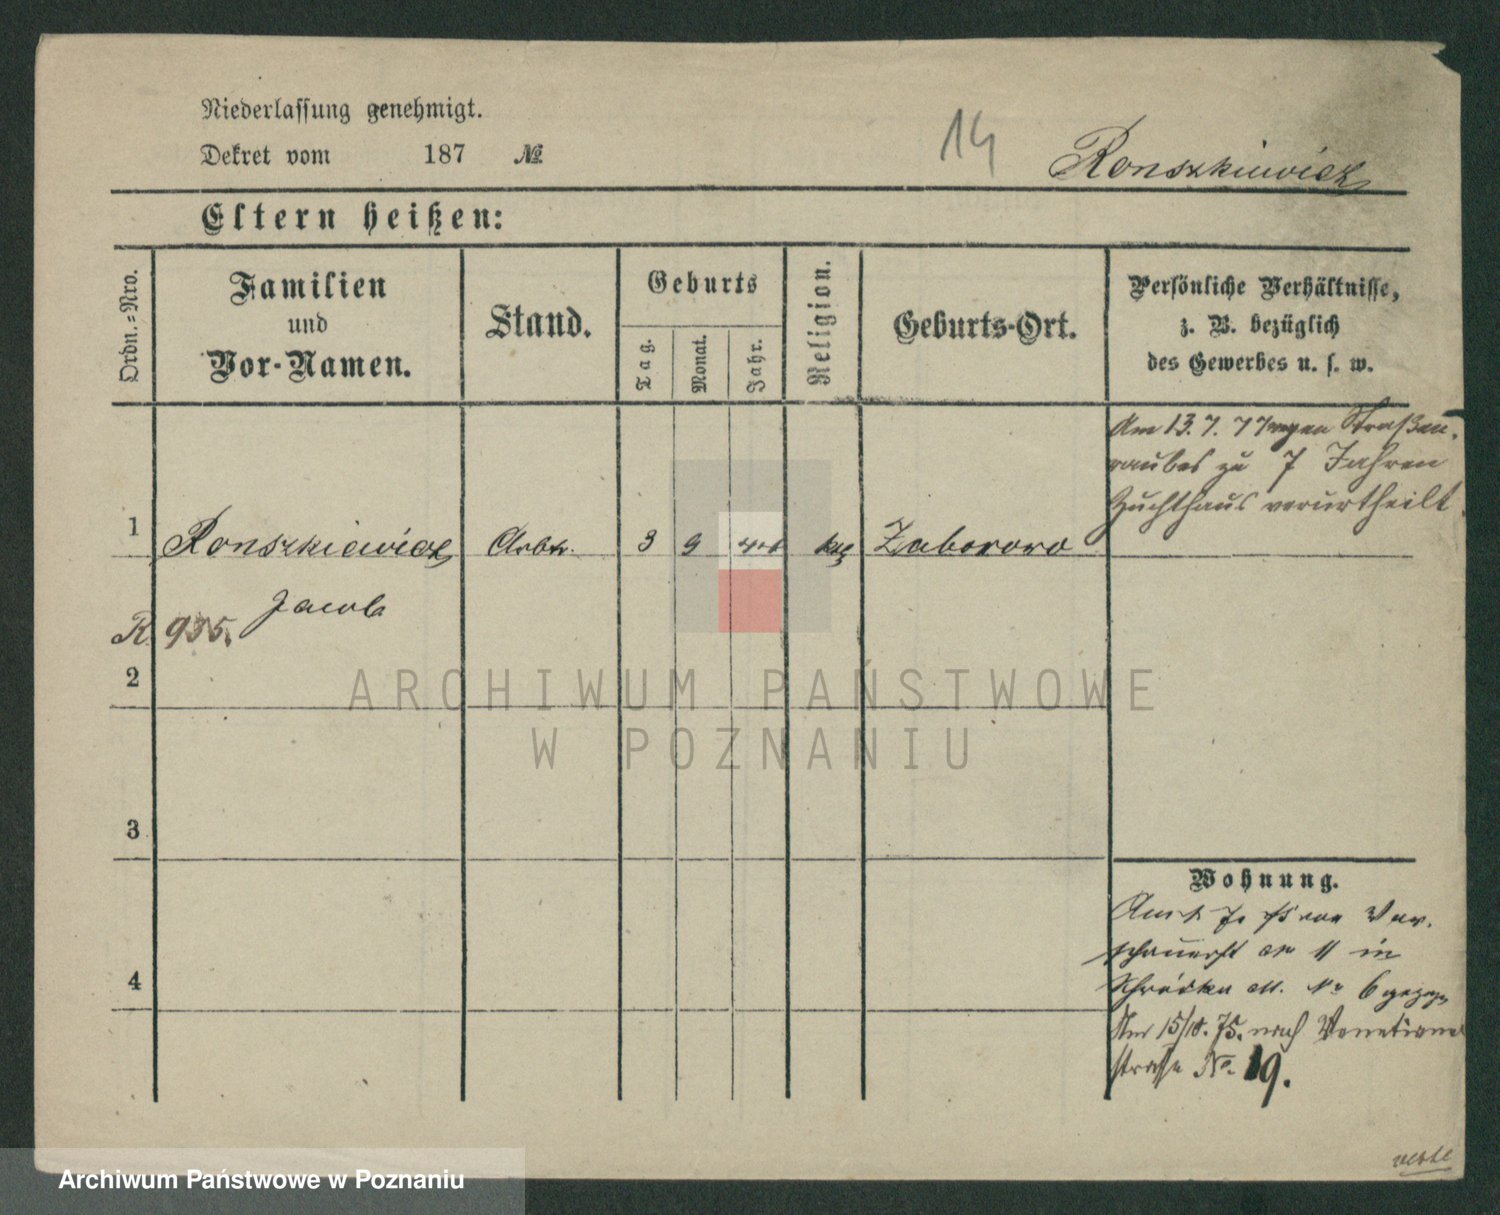 Niederlassung genehmigt.
Dekret vom 187 №
14
Ronszkiewicz
Eltern heißen:
Ordn.-Nro.
Familien
und
Vor-Namen.
Stand.
Geburts
Tag.
Monat.
Jahr.
Religion.
Geburts-Ort.
Persönliche Verhältnisse,
z. B. bezüglich
des Gewerbes u. s. w.
Am 13. 7. 77 wegen Straßen-
raubes zu 7 Jahren
Zuchthaus verurtheilt.
1
Ronszkiewicz
Arbtr.
3 9
kth
Zaborowo
Jacob
R. 935.
2
ARCHIWUM PAŃSTWOWE
W POZNANIU
3
Wohnung.
11 in
Schrodka No 6 gezogen
Am 15/10. 75. nach Venetianer
straße No. 19.
4
Archiwum Państwowe w Poznaniu
verte